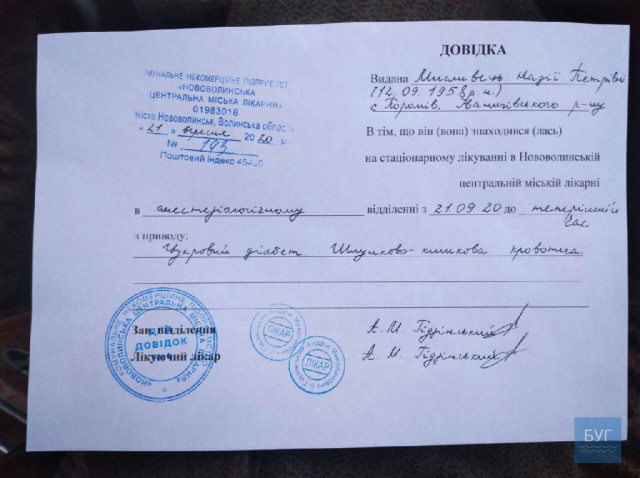 ДОВІДКА
КОМУНАЛЬНЕ НЕКОМЕРЦІЙНЕ ПІДПРИЄМСТ
«НОВОВОЛИНСЬКА
ЦЕНТРАЛЬНА МІСЬКА ЛІКАРНЯ»
01983018
місто Нововолинськ, Волинська область
« 21 » вересня 2020 р.
№ 193
Поштовий індекс 45400
Видана Мисливець Надії Петрівні
(12.09.1958 р.н.)
с. Поромів, Іваничівського р-ну
В тім, що він (вона) знаходився (лась)
на стаціонарному лікуванні в Нововолинській
центральній міській лікарні
в анестезіологічному відділенні з 21.09.20 до теперішній
час
з приводу:
Цукровий діабет Шлунково-кишкова кровотеча
Зав. відділення А. М. Гідзінський
Лікуючий лікар А. М. Гідзінський
ДЛЯ
ДОВІДОК
ЛІКАР
ЛІКАР
БУГ